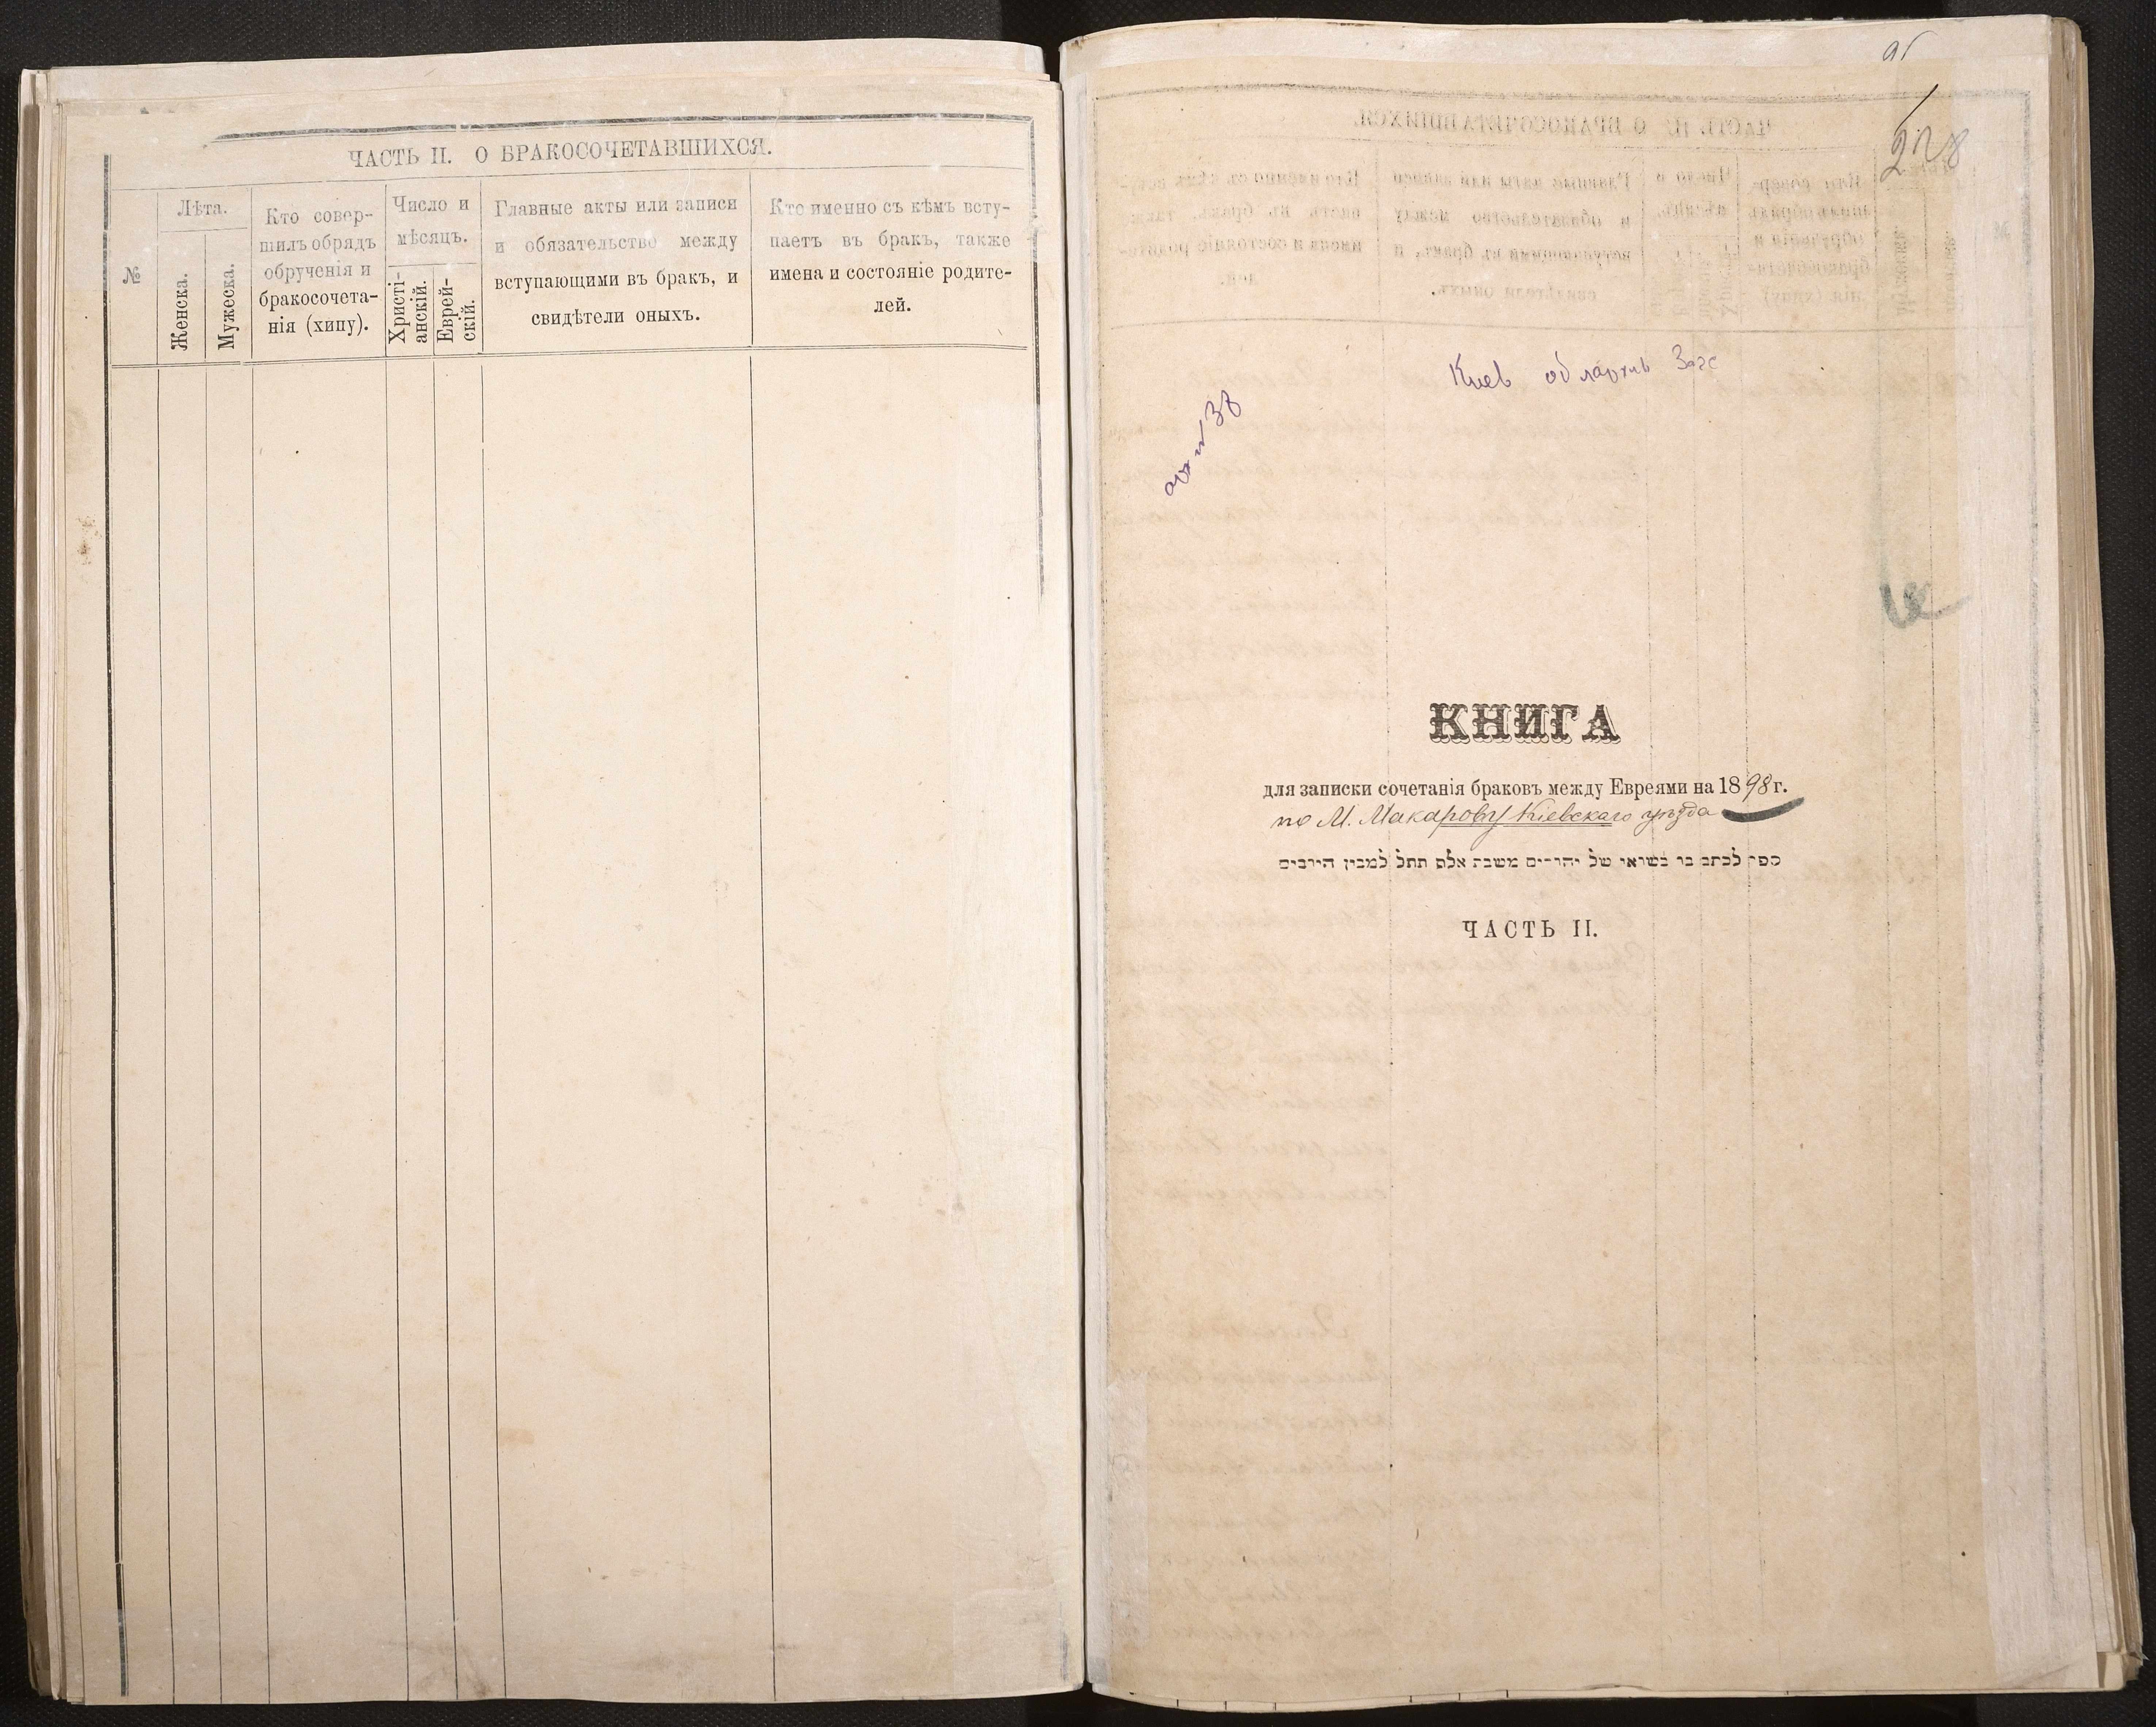 ЧАСТЬ II. О БРАКОСОЧЕТАВШИХСЯ.
№
Лѣта.
Женска.
Мужеска.
Кто совер-
шилъ обрядъ
обрученія и
бракосочета-
нія (хипу).
Число и
мѣсяцъ.
Христі-
анскій.
Еврей-
скій.
Главные акты или записи
и обязательство между
вступающими въ бракъ, и
свидѣтели оныхъ.
Кто именно съ кѣмъ всту-
паетъ въ бракъ, также
имена и состояніе родите-
лей.
Киев облархив Загс
арх № 38
КНИГА
для записки сочетанія браковъ между Евреями на 1898 г.
по М. Макарову Кіевскаго уѣзда
ספר לכתב בו נשואי של יהודים משבת אלף תתל למבין היובים
ЧАСТЬ II.